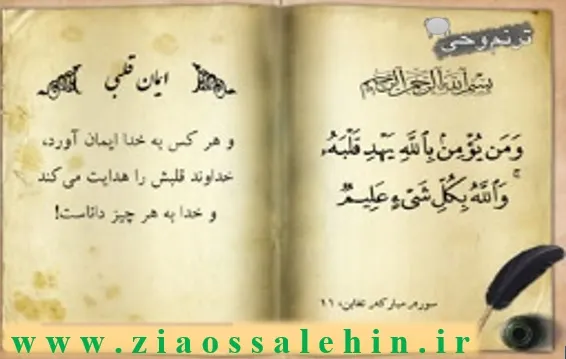 ترنم وحی
بسم الله الرحمن الرحیم
وَمَن يُؤْمِنۢ بِٱللَّهِ يَهْدِ قَلْبَهُۥ
ۚ وَٱللَّهُ بِكُلِّ شَىْءٍ عَلِيمٌ
سوره مبارکه تغابن، ۱۱
ایمان قلبی
و هر کس به خدا ایمان آورد،
خداوند قلبش را هدایت می‌کند
و خدا به هر چیز داناست!
www.ziaossalehin.ir